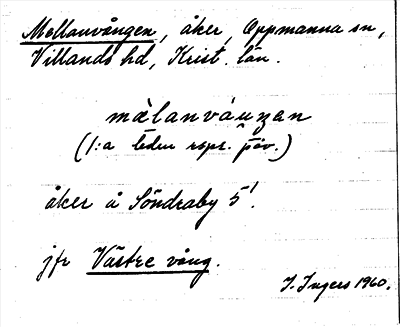 Mellanvången, åker, Oppmanna sn,
Villands hd, Krist. län.
mälanváuŋan
(1:a leden
åker å Söndraby 5¹.
jfr Västre vång.
I. Ingers 1960.